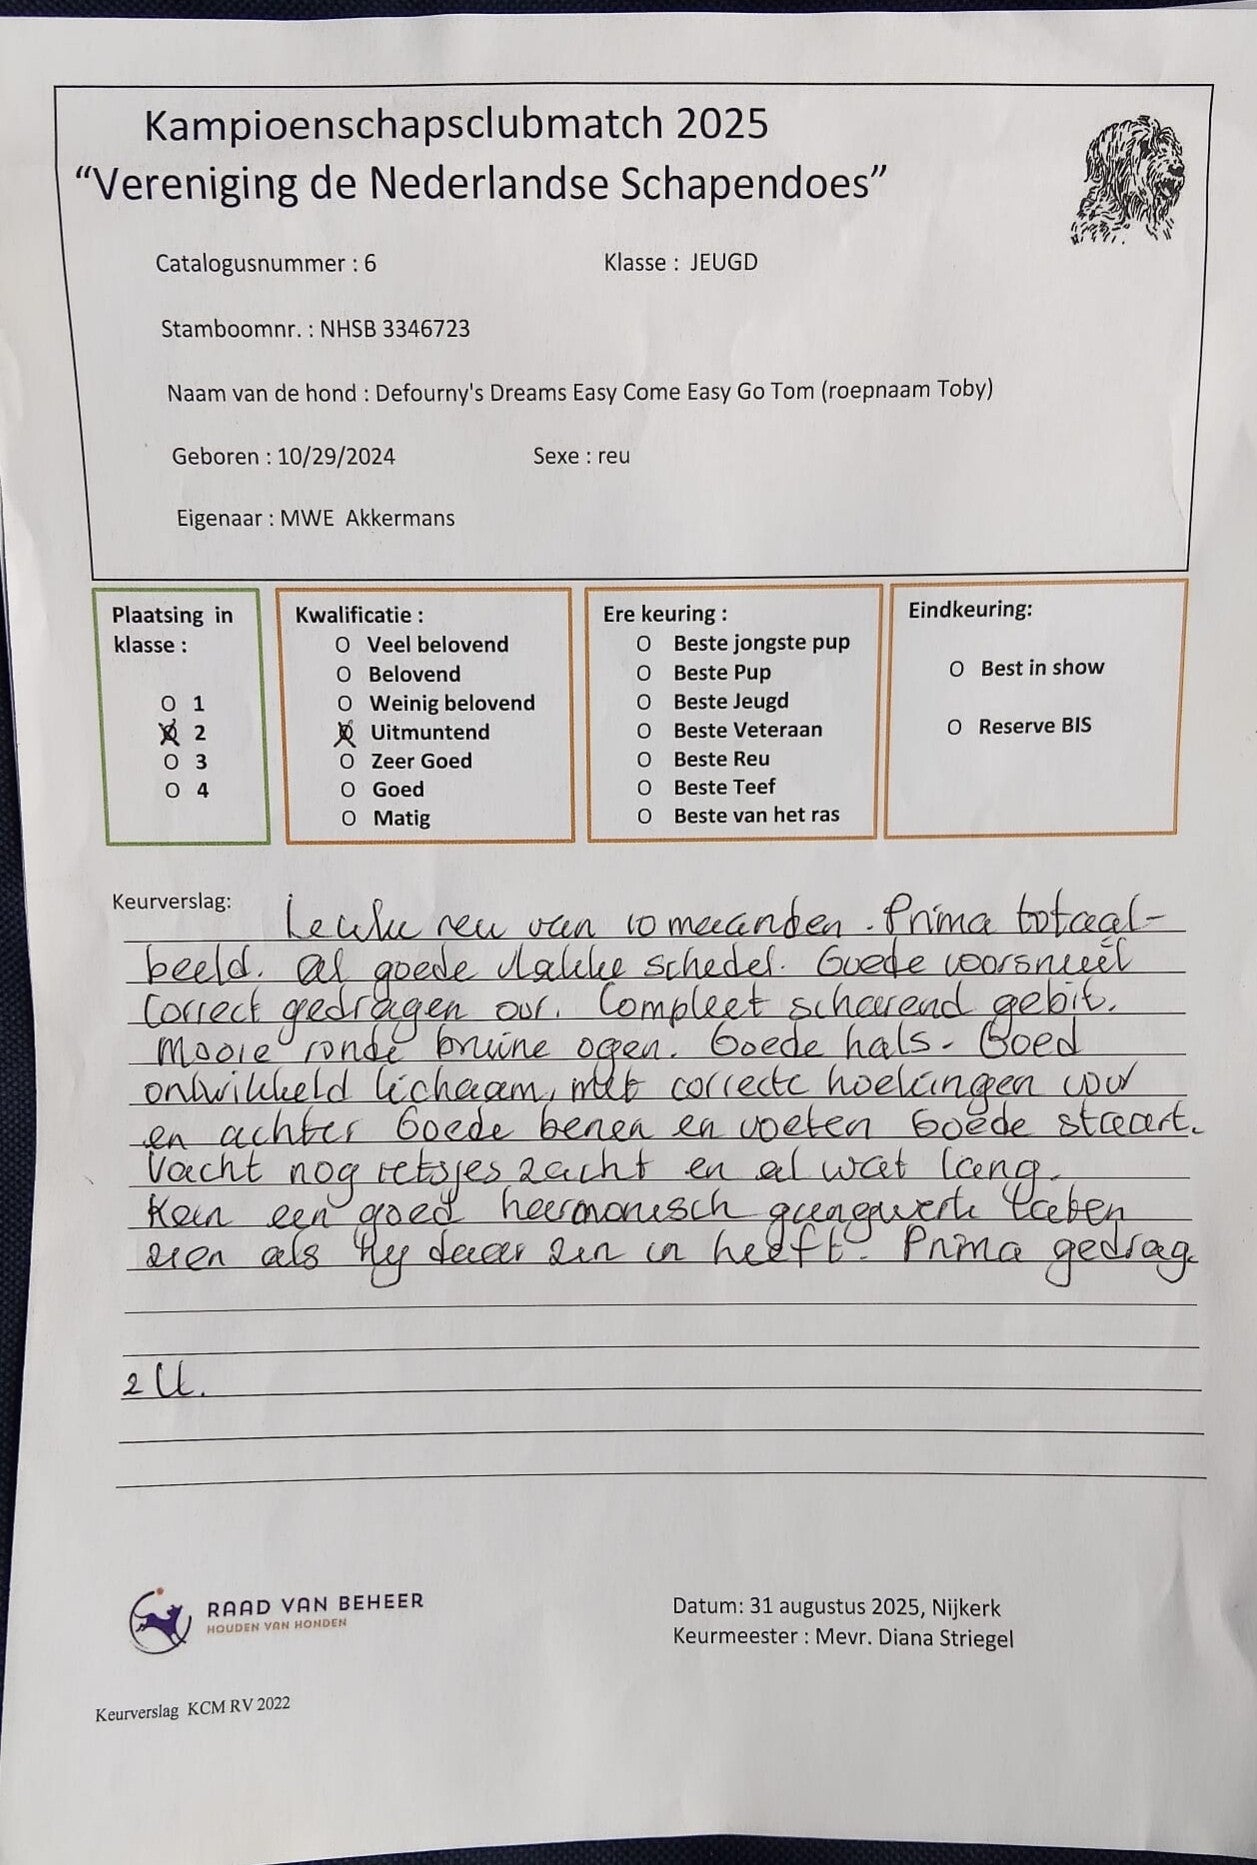 Kampioenschapsclubmatch 2025
“Vereniging de Nederlandse Schapendoes”
Catalogusnummer : 6 Klasse : JEUGD
Stamboomnr. : NHSB 3346723
Naam van de hond : Defourny's Dreams Easy Come Easy Go Tom (roepnaam Toby)
Geboren : 10/29/2024 Sexe : reu
Eigenaar : MWE Akkermans
Plaatsing in
klasse :
O 1
O 2
O 3
O 4
Kwalificatie :
O Veel belovend
O Belovend
O Weinig belovend
O Uitmuntend
O Zeer Goed
O Goed
O Matig
Ere keuring :
O Beste jongste pup
O Beste Pup
O Beste Jeugd
O Beste Veteraan
O Beste Reu
O Beste Teef
O Beste van het ras
Eindkeuring:
O Best in show
O Reserve BIS
Keurverslag: Leuke reu van 10 maanden. Prima totaal-
beeld. Al goede vlakke schedel. Goede voorsnuit
Correct gedragen oor. Compleet scharend gebit.
Mooie ronde bruine ogen. Goede hals. Goed
ontwikkeld lichaam, met correcte hoekingen voor
en achter Goede benen en voeten Goede staart.
Vacht nog ietsjes zacht en al wat lang.
Kan een goed harmonisch gangwerk laten
zien als hij daar zin in heeft. Prima gedrag.
2 U.
RAAD VAN BEHEER
HOUDEN VAN HONDEN
Datum: 31 augustus 2025, Nijkerk
Keurmeester : Mevr. Diana Striegel
Keurverslag KCM RV 2022